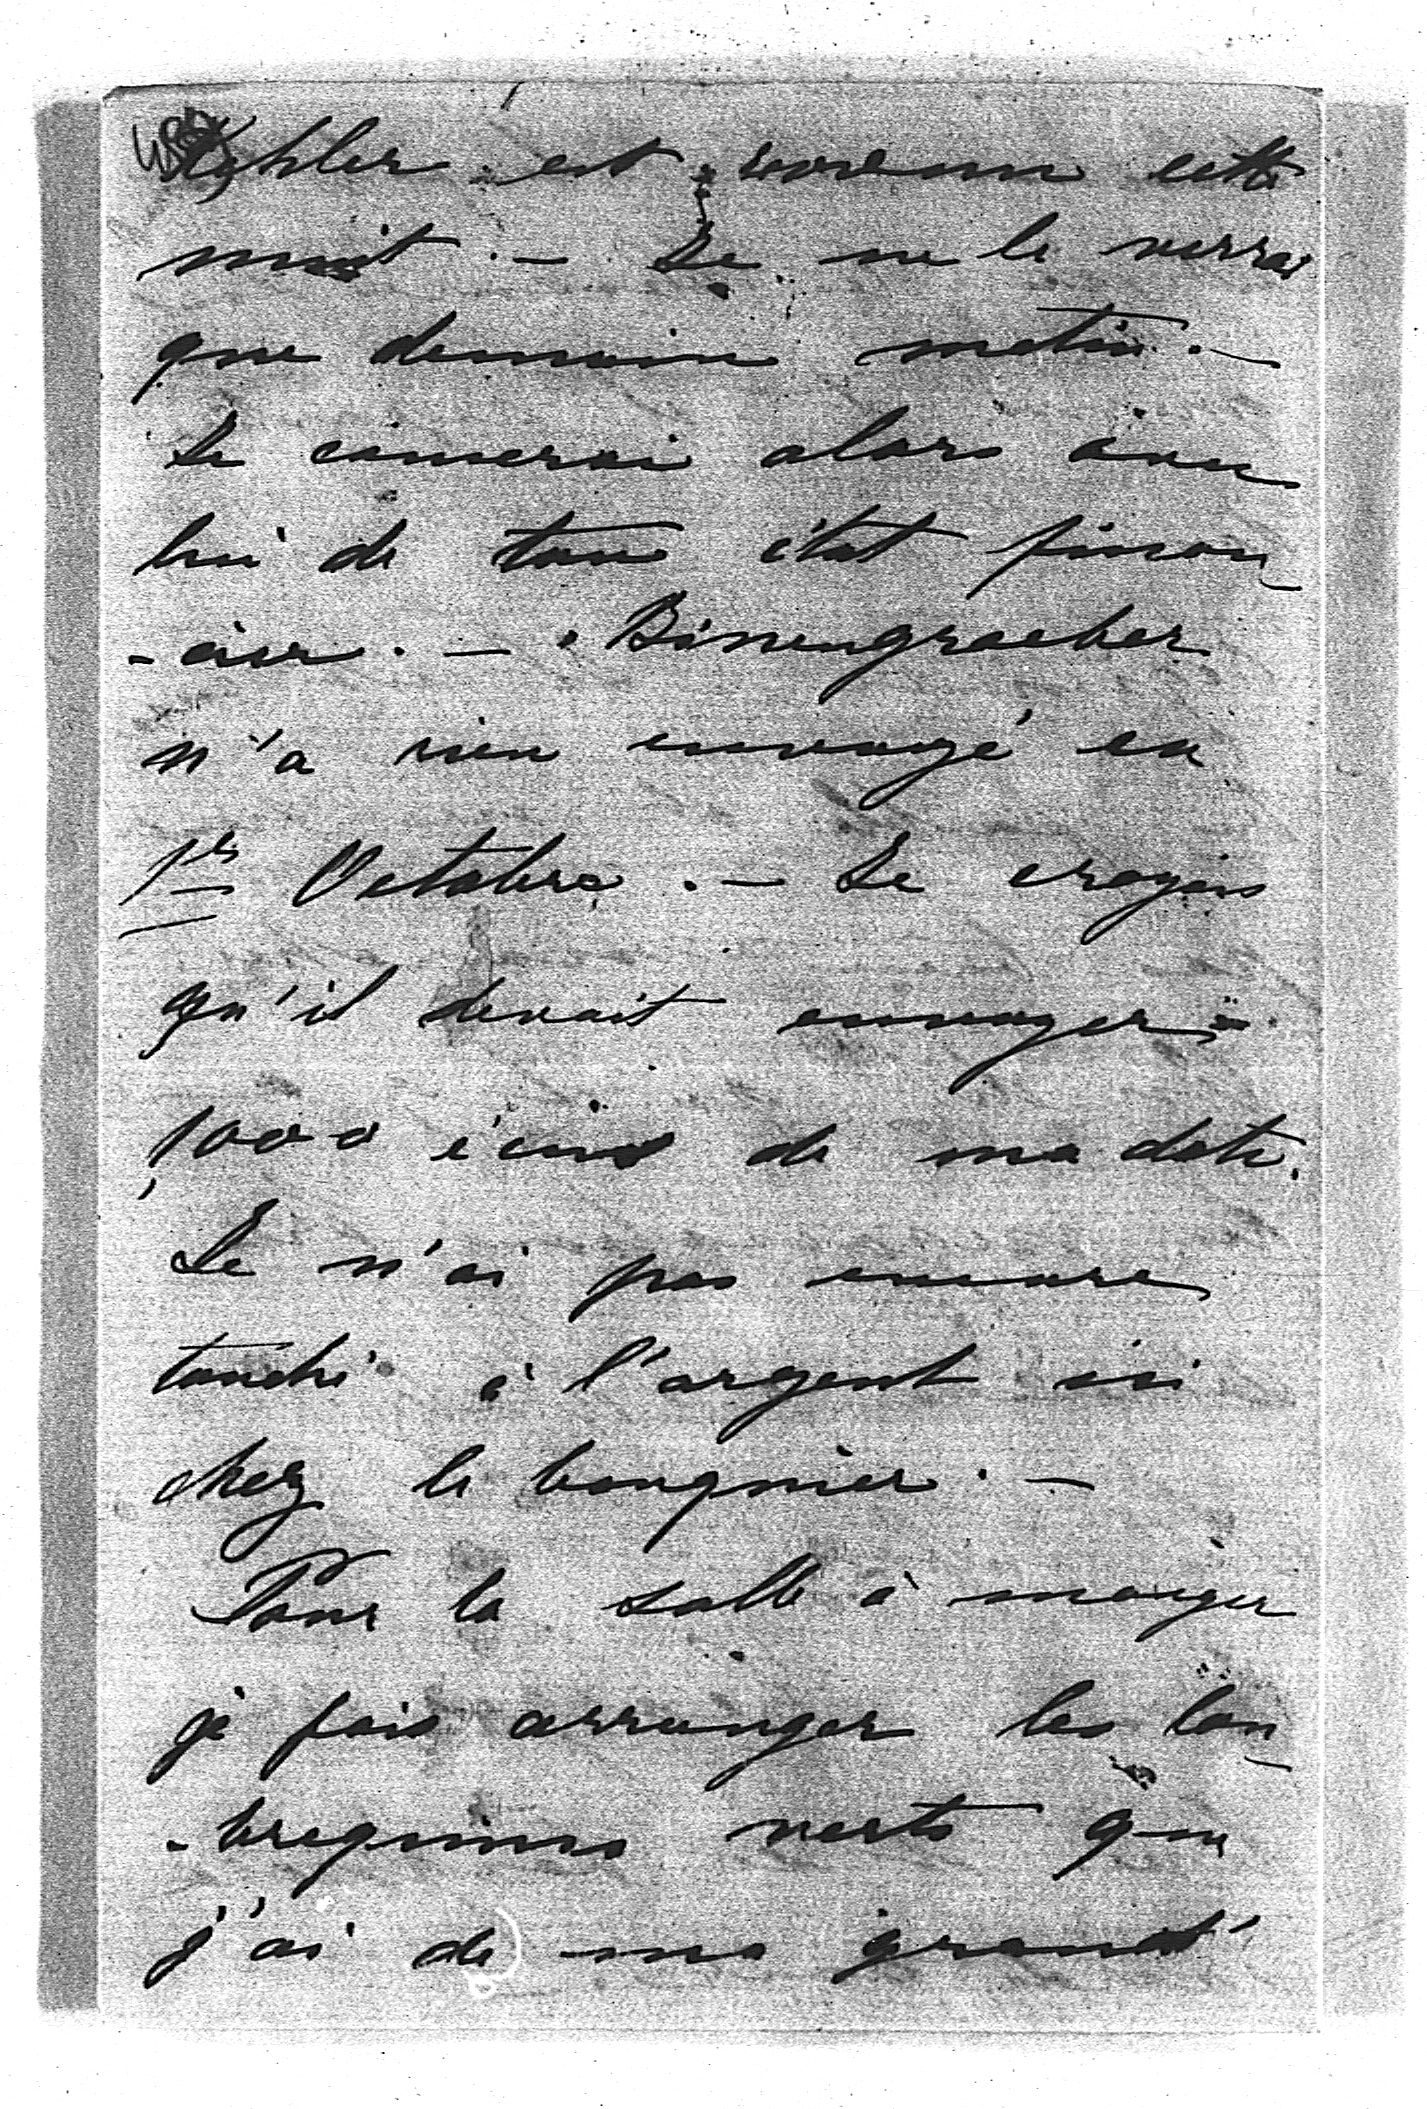 est revenu cette
nuit. — Je ne le verrai
que demain matin. —
Je causerai alors avec
lui de ton état finan-
-cier. — Binengraeber
n'a rien envoyé en
1er Octobre. — Je croyais
qu'il devait envoyer
1000 écus de ma dote.
Je n'ai pas encore
touché à l'argent ici
chez le banquier. —
Pour la salle à manger
je fais arranger les lam-
-brequins verts que
j'ai de ma grand'